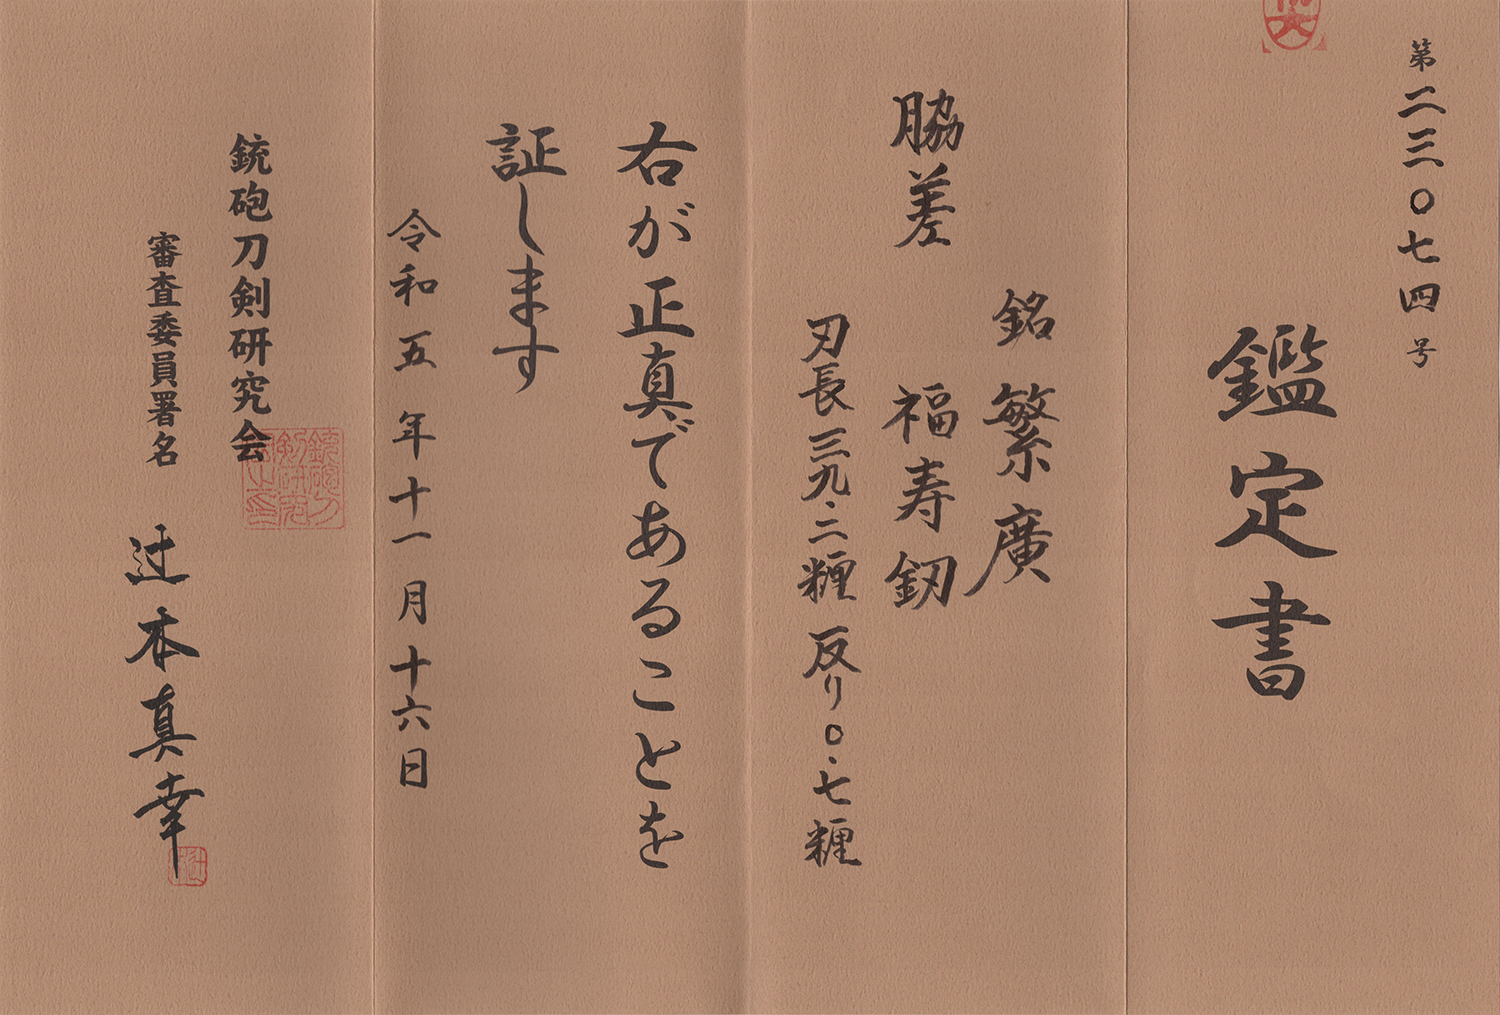 第二三〇七四号
鑑定書
銘 繁廣
脇差 福寿釼
刃長 三九.二糎 反り〇.七糎
右が正真であることを
証します
令和五年十一月十六日
銃砲刀剣研究会
審査委員署名 辻本真幸